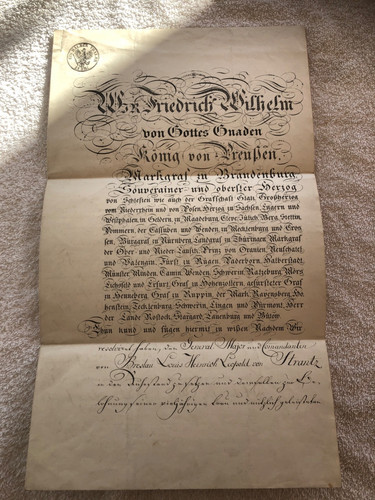 Wir Friedrich Wilhelm
von Gottes Gnaden
König von Preußen,
Markgraf zu Brandenburg
Souverainer und oberster Herzog
von Schlesien wie auch der Grafschaft Glatz, Großherzog
von Niederrhein und von Posen, Herzog zu Sachsen, Engern und
Westphalen, in Geldern, zu Magdeburg, Cleve, Jülich, Berg, Stettin,
Pommern, der Cassuben und Wenden, zu Mecklenburg und Cros
sen, Burggraf zu Nürnberg, Landgraf zu Thüringen, Markgraf
der Ober und Nieder Lausitz, Prinz von Oranien, Neufchatel
und Valengin, Fürst zu Rügen, Paderborn, Halberstadt,
Münster, Minden, Camin, Wenden, Schwerin, Ratzeburg, Mörs,
Eichsfeld und Erfurt, Graf zu Hohenzollern, gefürsteter Graf
zu Henneberg, Graf zu Ruppin, der Mark, Ravensberg, Ho
henstein, Tecklenburg, Schwerin, Lingen und Pyrmont, Herr
der Lande Rostock, Stargard, Lauenburg und Bütow
Thun kund und fügen hiermit zu wissen Nachdem Wir
resolvirt haben, den General Major und Commandanten
von Breslau Louis Heinrich Leopold von Strantz
in den Ruhestand zu setzen und demselben zur Be
lohnung seiner vieljährigen treu und nützlich geleisteten